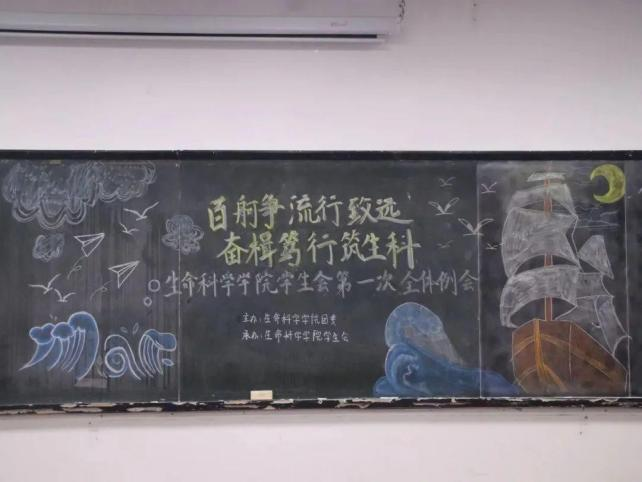 百舸争流行致远
奋楫笃行筑生科
生命科学学院学生会第一次全体例会
主办:生命科学学院团委
承办:生命科学学院学生会